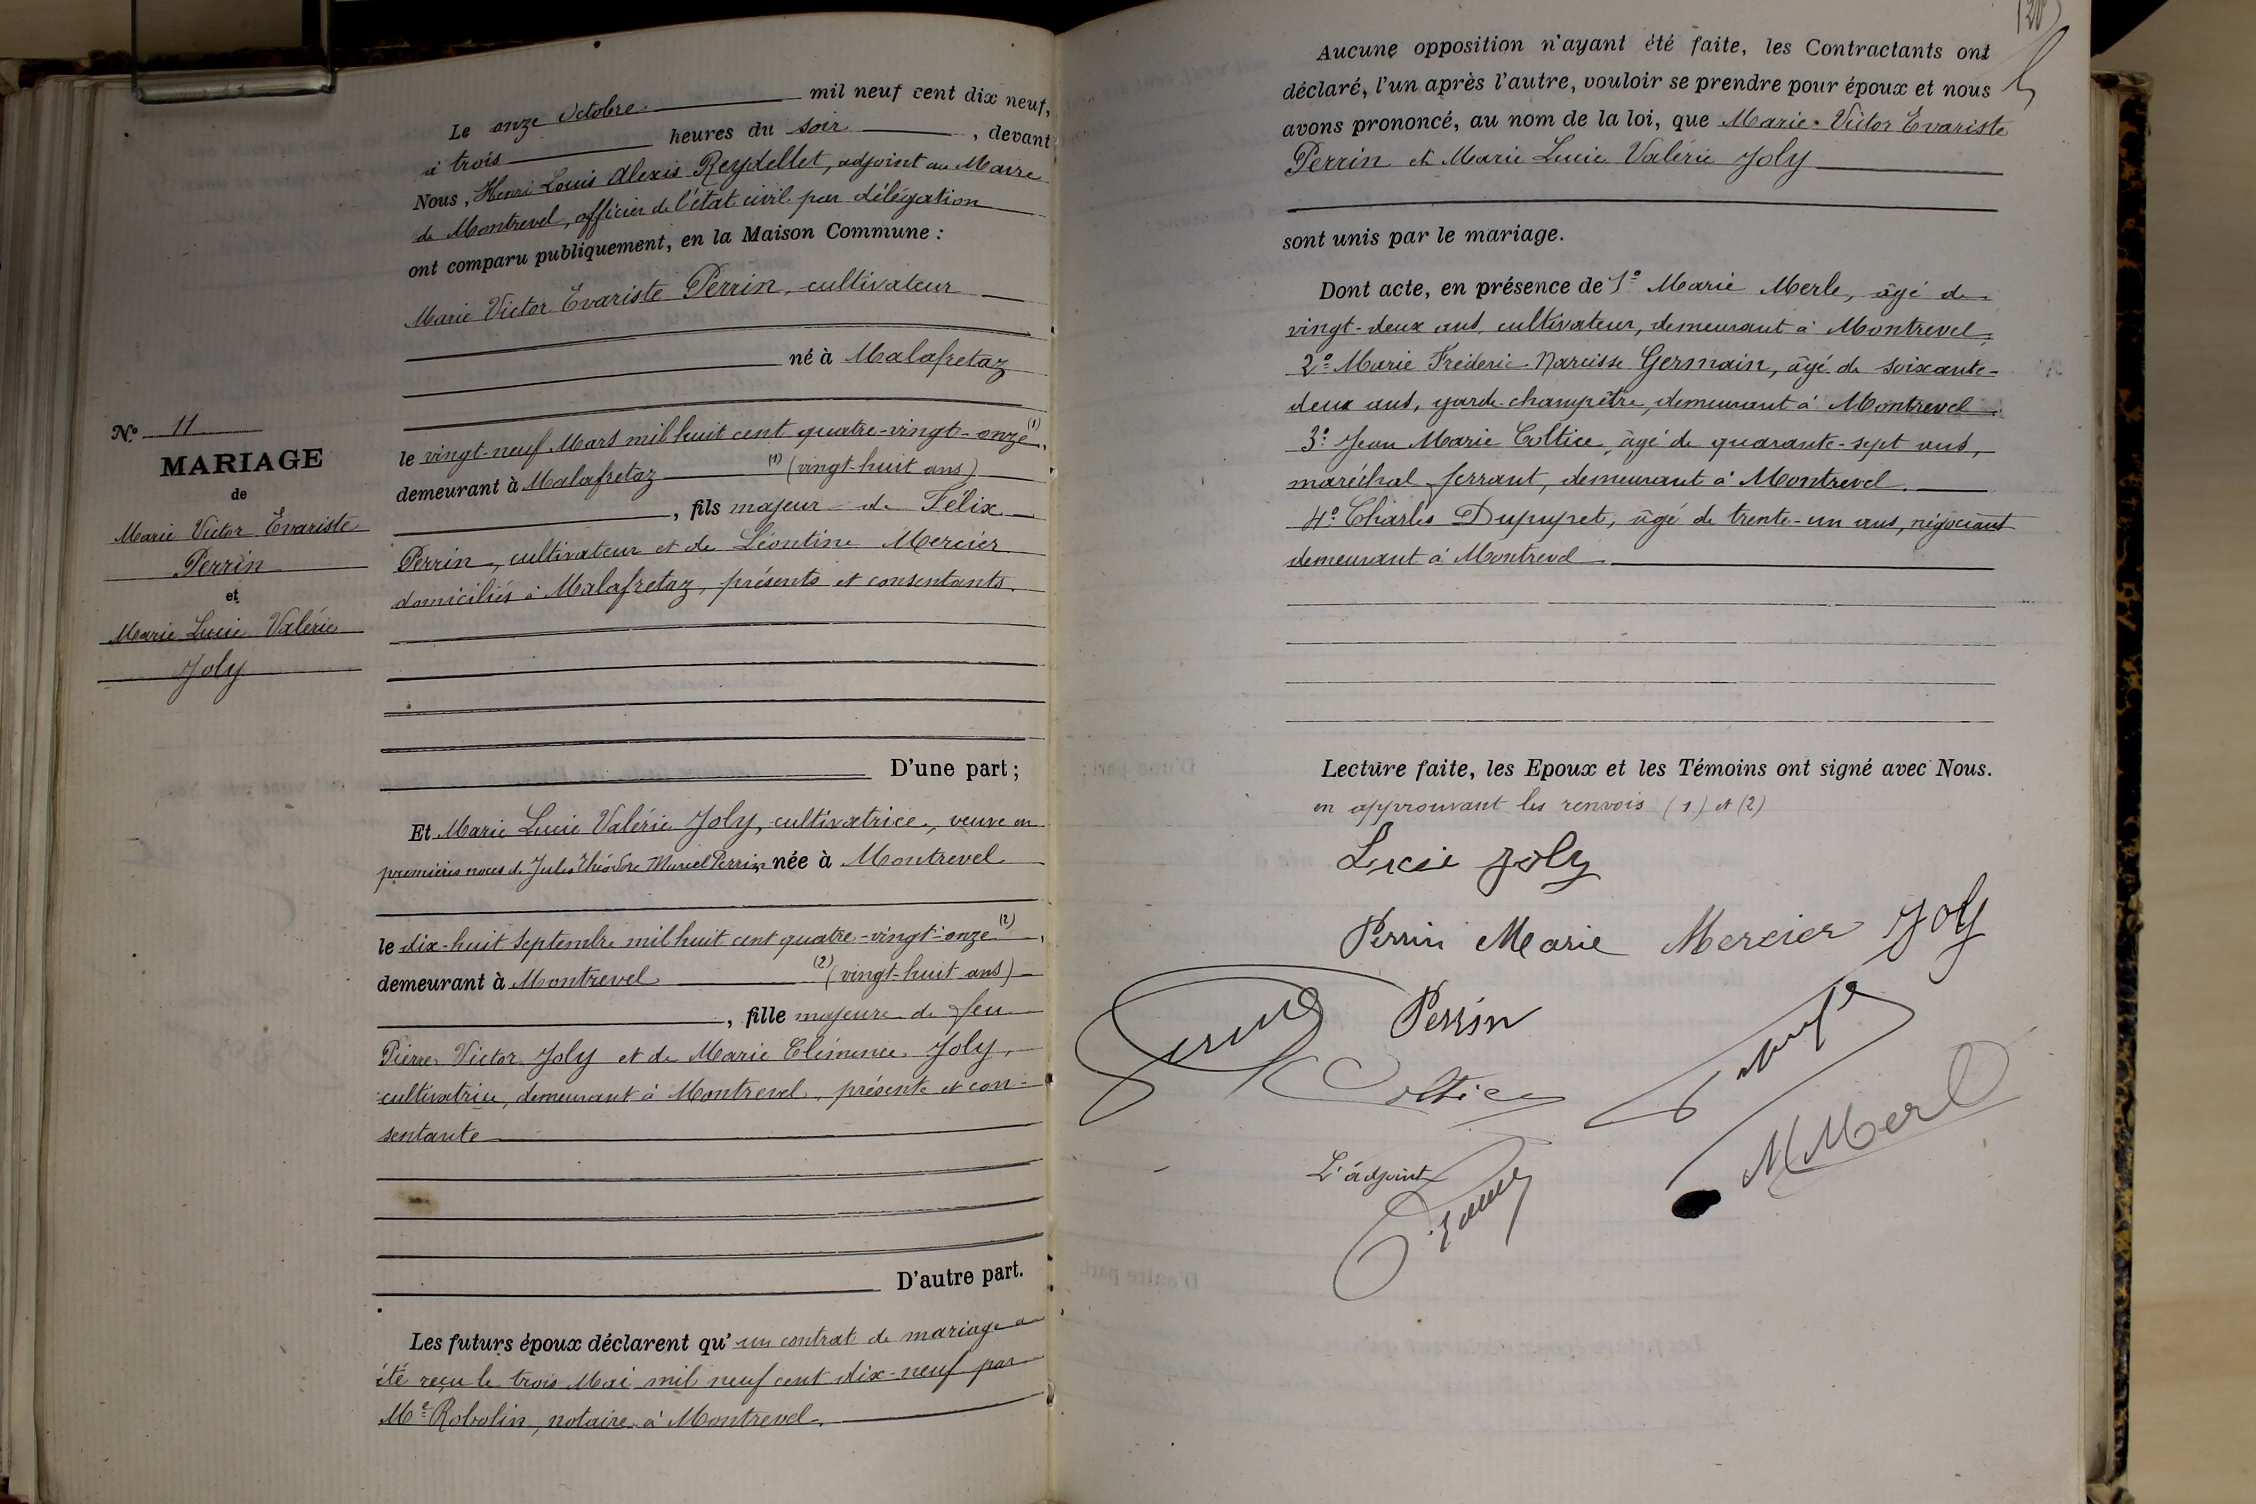 Le onze Octobre mil neuf cent dix neuf,
à trois heures du soir, devant
Nous, Henri Louis Alexis Reydellet, adjoint au Maire
de Montrevel, officier de l'état civil par délégation
ont comparu publiquement, en la Maison Commune :
Marie Victor Evariste Perrin, cultivateur
né à Malafretaz
le vingt-neuf Mars mil huit cent quatre-vingt-onze (1),
demeurant à Malafretaz (1) (vingt-huit ans)
, fils majeur de Félix
Perrin, cultivateur et de Léontine Mercier
domiciliés à Malafretaz, présents et consentants.
D'une part ;
Et Marie Lucie Valérie Joly, cultivatrice, veuve en
premières noces de Jules Théodore Marcel Perrin, née à Montrevel
le dix-huit Septembre mil huit cent quatre-vingt-onze (2),
demeurant à Montrevel (2) (vingt-huit ans)
, fille majeure de feu
Pierre Victor Joly et de Marie Clémence Joly,
cultivatrice, demeurant à Montrevel, présente et con-
sentante
D'autre part.
Les futurs époux déclarent qu'un contrat de mariage a
été reçu le trois Mai mil neuf cent dix-neuf par
Me Robolin, notaire à Montrevel.
N° 11
MARIAGE
de
Marie Victor Evariste
Perrin
et
Marie Lucie Valérie
Joly
Aucune opposition n'ayant été faite, les Contractants ont
déclaré, l'un après l'autre, vouloir se prendre pour époux et nous
avons prononcé, au nom de la loi, que Marie Victor Evariste
Perrin et Marie Lucie Valérie Joly
sont unis par le mariage.
Dont acte, en présence de 1° Marie Merle, âgé de
vingt-deux ans, cultivateur, demeurant à Montrevel,
2° Marie Fréderic Narcisse Germain, âgé de soixante-
deux ans, garde-champêtre, demeurant à Montrevel
3° Jean Marie Coltice, âgé de quarante-sept ans,
maréchal ferrant, demeurant à Montrevel.
4° Charles Dupupet, âgé de trente-un ans, négociant
demeurant à Montrevel
Lecture faite, les Epoux et les Témoins ont signé avec Nous.
en approuvant les renvois (1) et (2)
Lucie Joly
Perrin Marie Mercier Joly
Perrin
Coltice
M Merle
L'adjoint